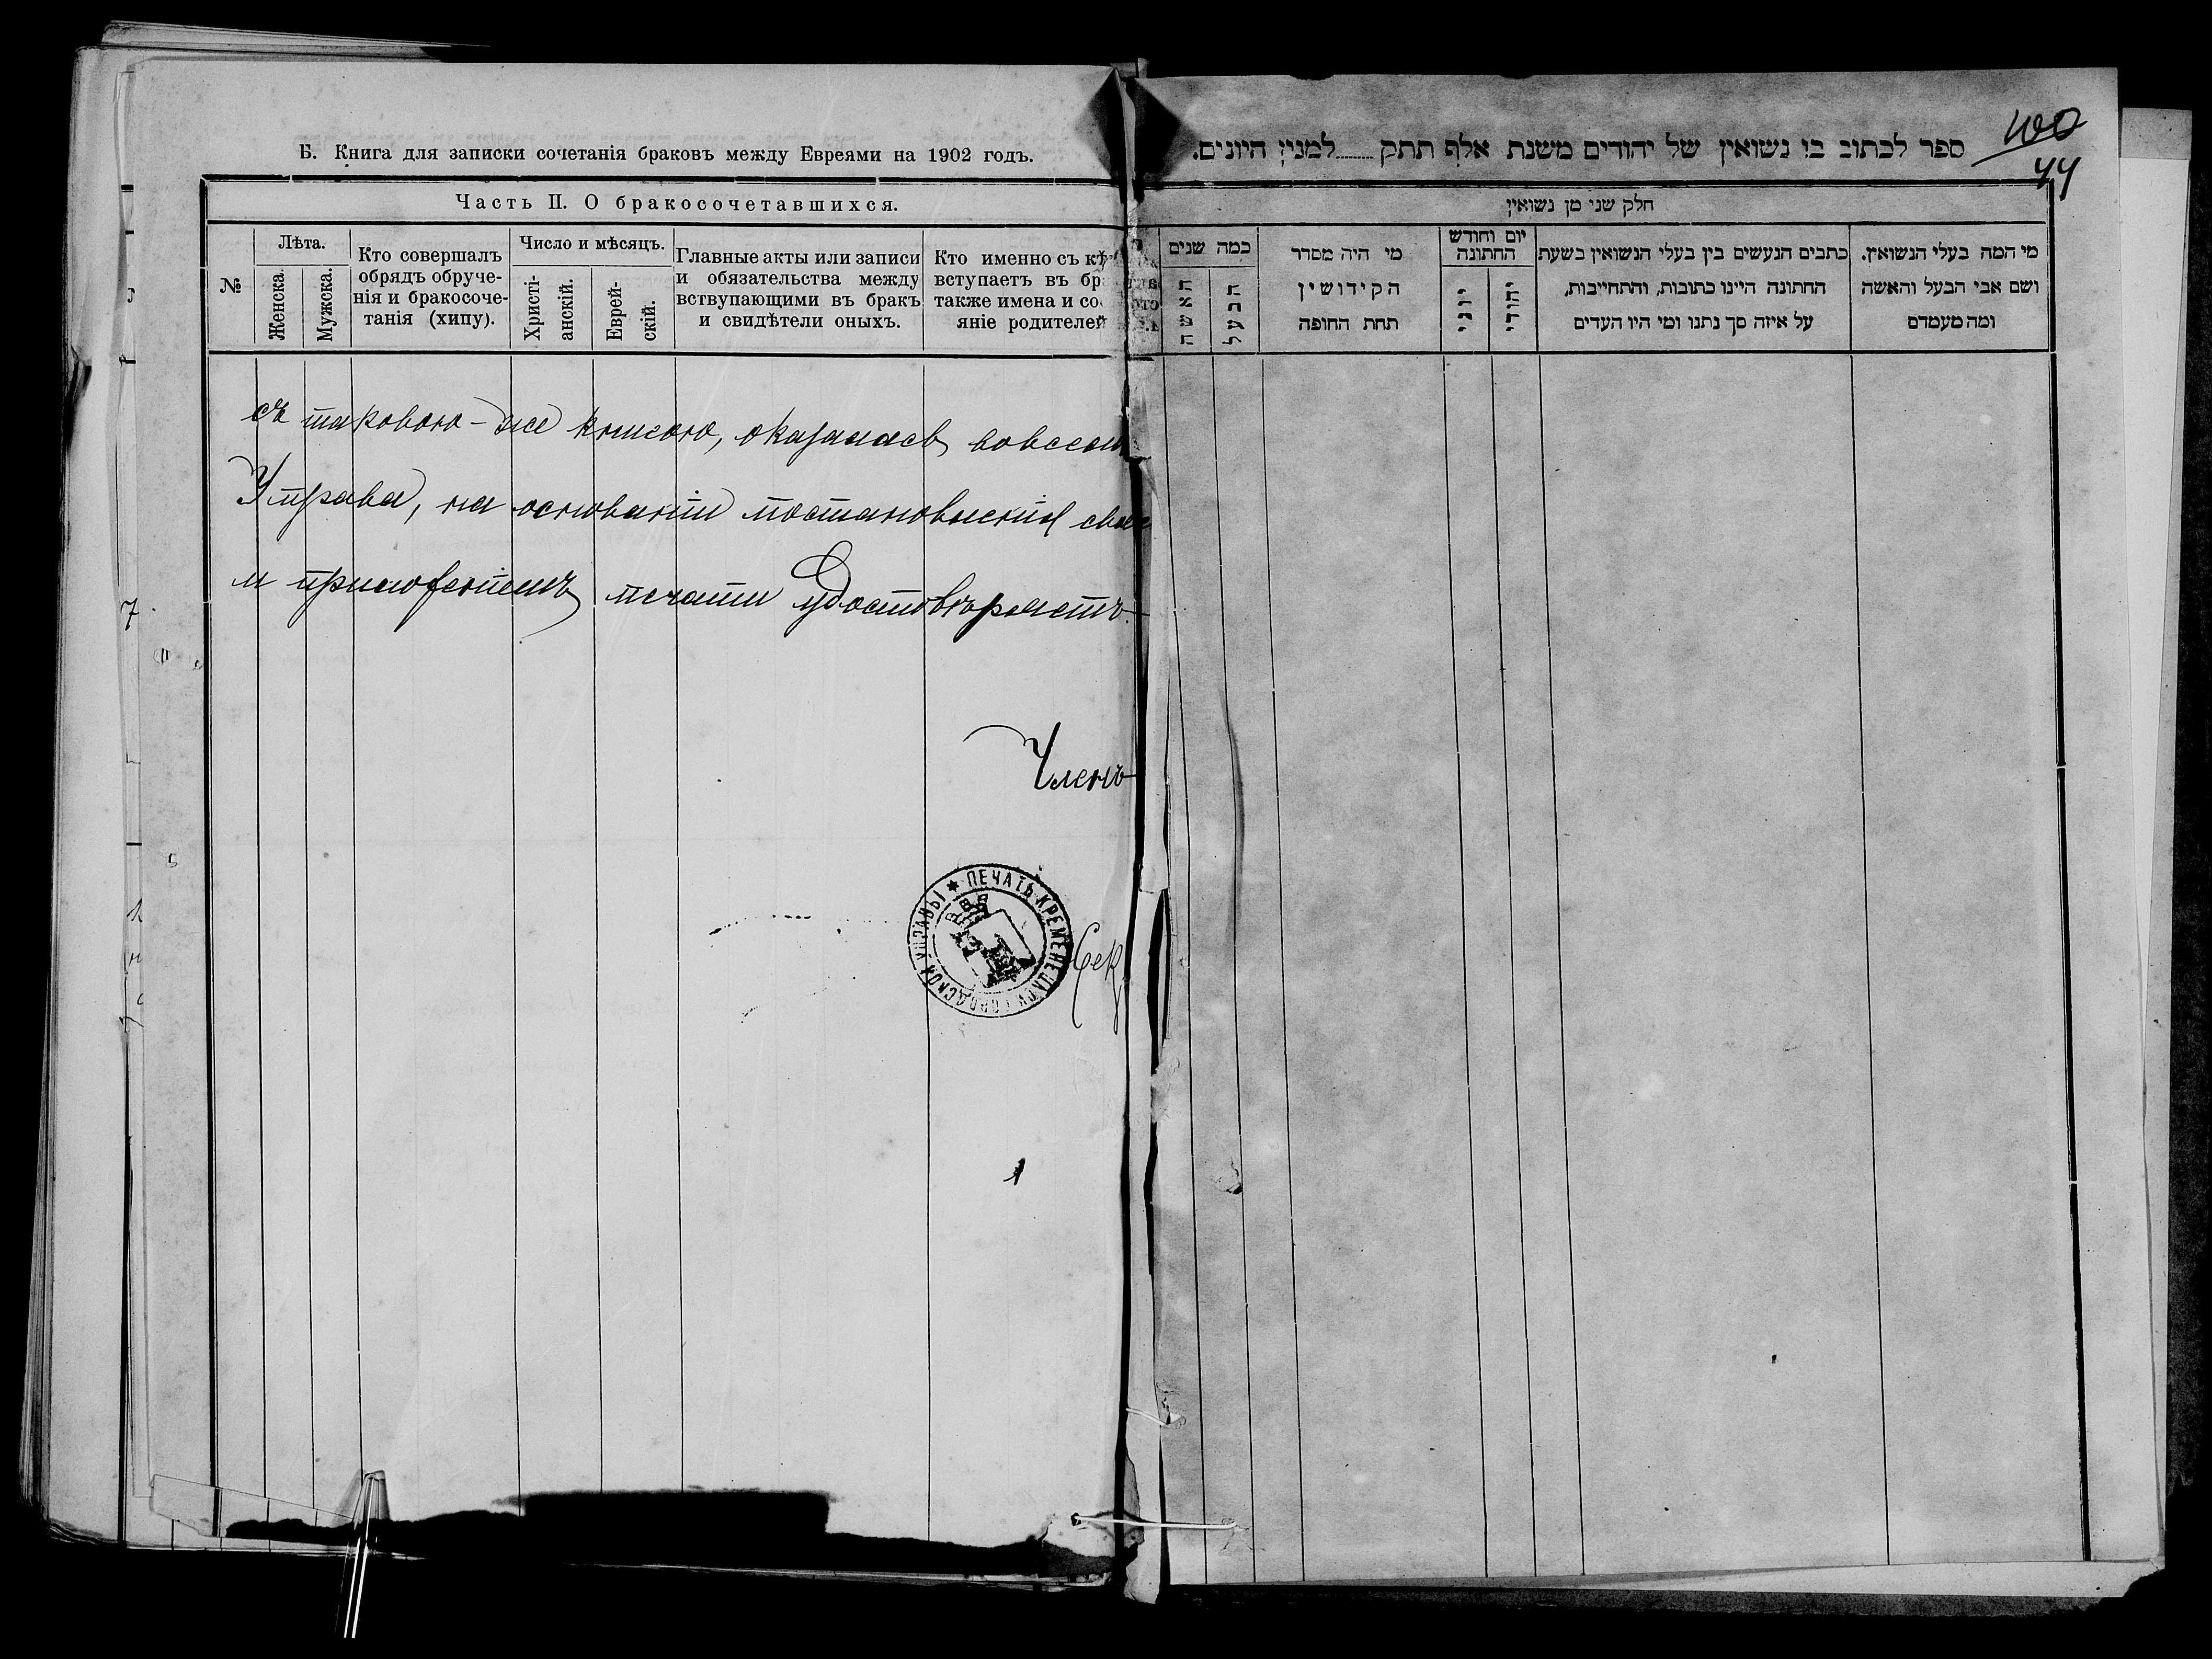 Б. Книга для записки сочетанія браковъ между Евреями на 1902 годъ.
Часть II. О бракосочетавшихся.
№
Лѣта.
Женска.
Мужска.
Кто совершалъ
обрядъ обруче-
нія и бракосоче-
танія (хипу).
Число и мѣсяцъ.
Христі-
анскій.
Еврей-
скій.
Главные акты или записи
и обязательства между
вствупающими въ бракъ
и свидѣтели оныхъ.
Кто именно съ кѣ
вступаетъ въ бр
также имена и со
яніе родителей
съ таковою-же книгою, оказалась вовсем
Управа, на основаніи постановленія свое
и приложеніемъ печати удостовѣряетъ.
Членъ
ПЕЧАТЬ КРЕМЕНЕЦКОЙ ГОРОДСКОЙ УПРАВЫ
Сек
100
44
ספר לכתוב בו נשואין של יהודים משנת אלף תתק........למנין היונים.
חלק שני מן נשואין
מי המה בעלי הנשואין.
ושם אבי הבעל והאשה
ומה מעמדם
כתבים הנעשים בין בעלי הנשואין בשעת
החתונה היינו כתובות, והתחייבות,
על איזה סך נתנו ומי היו העדים
יום וחודש
החתונה
יהודי
יוני
מי היה מסדר
הקידושין
תחת החופה
כמה שנים
הבעל
האשה